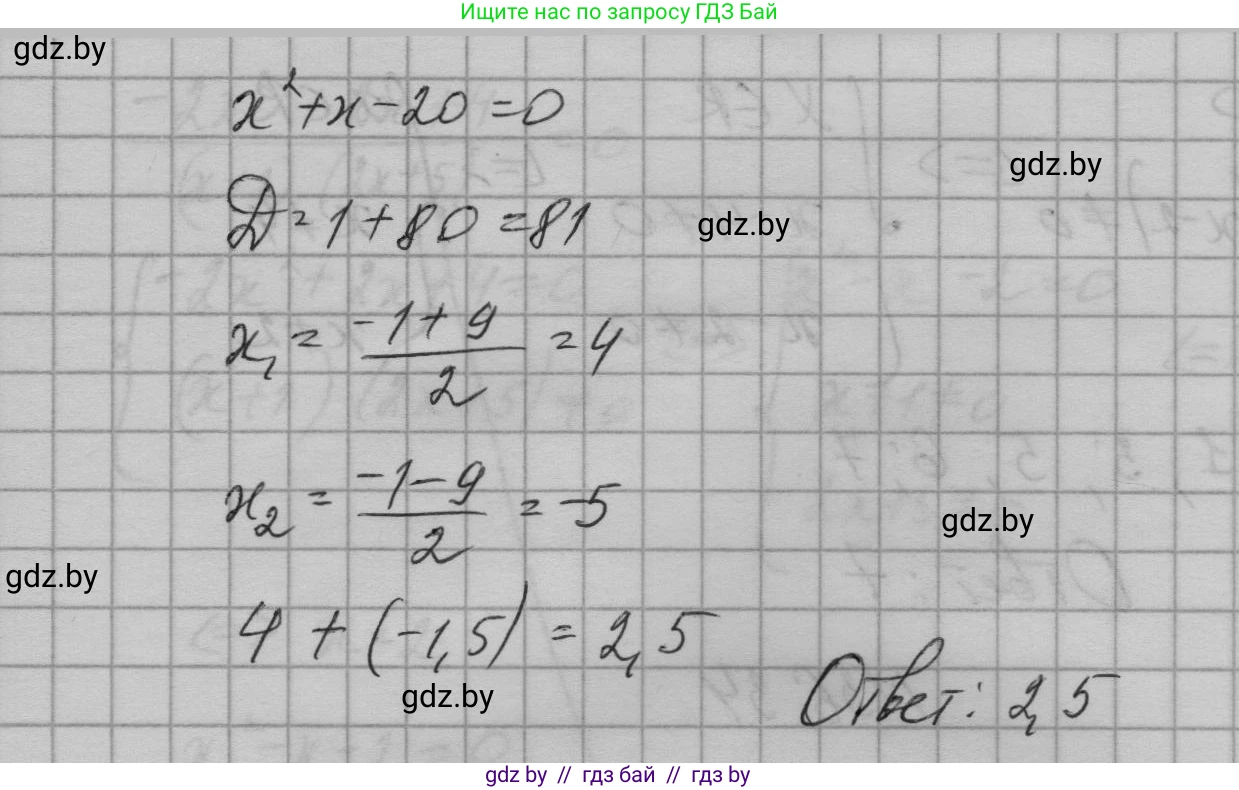 Ищите нас по запросу ГДЗ Бай
gdz.by
x²+x-20=0
gdz.by
D=1+80=81
gdz.by
x₁ = (-1+9)/2 = 4
x₂ = (-1-9)/2 = -5
gdz.by
gdz.by
4 + (-1,5) = 2,5
gdz.by
Ответ: 2,5
gdz by // гдз бай // гдз by